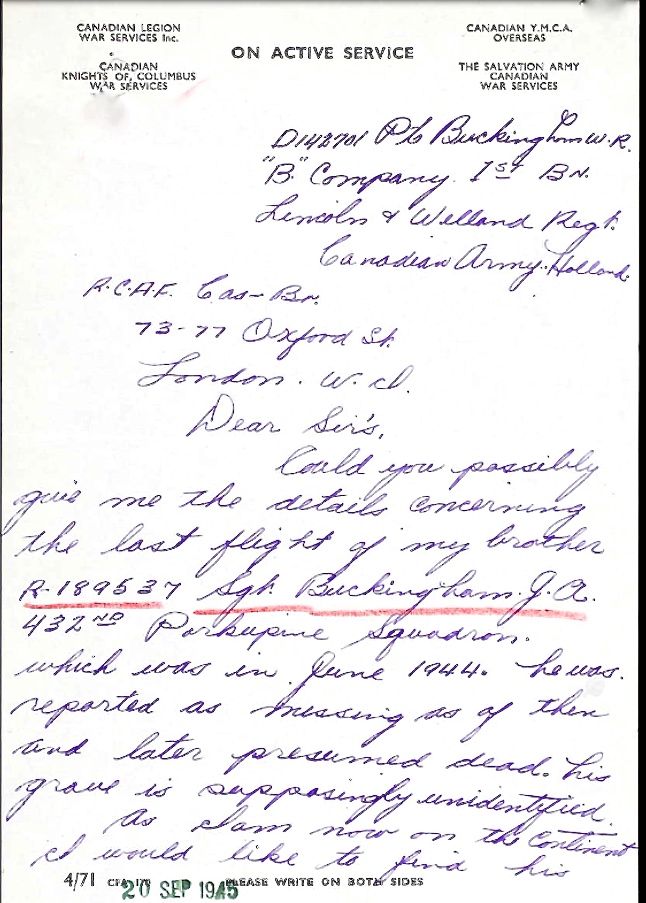 CANADIAN LEGION
WAR SERVICES Inc.
CANADIAN
KNIGHTS OF COLUMBUS
WAR SERVICES
ON ACTIVE SERVICE
CANADIAN Y.M.C.A.
OVERSEAS
THE SALVATION ARMY
CANADIAN
WAR SERVICES
D142701 Pte Buckingham W.R.
"B" Company 1ST BN.
Lincoln & Welland Regt.
Canadian Army. Holland.
R.C.A.F. Cas-Br.
73-77 Oxford St.
London. W.1.
Dear Sir's,
Could you possibly
give me the details concerning
the last flight of my brother
R-189537 Sgt. Buckingham. J.A.
432ND Porkupine Squadron.
which was in June 1944. he was.
reported as missing as of then
and later presumed dead. his
grave is supposingly unidentified.
As I am now on the Continent
I would like to find his
4/71
20 SEP 1945
PLEASE WRITE ON BOTH SIDES